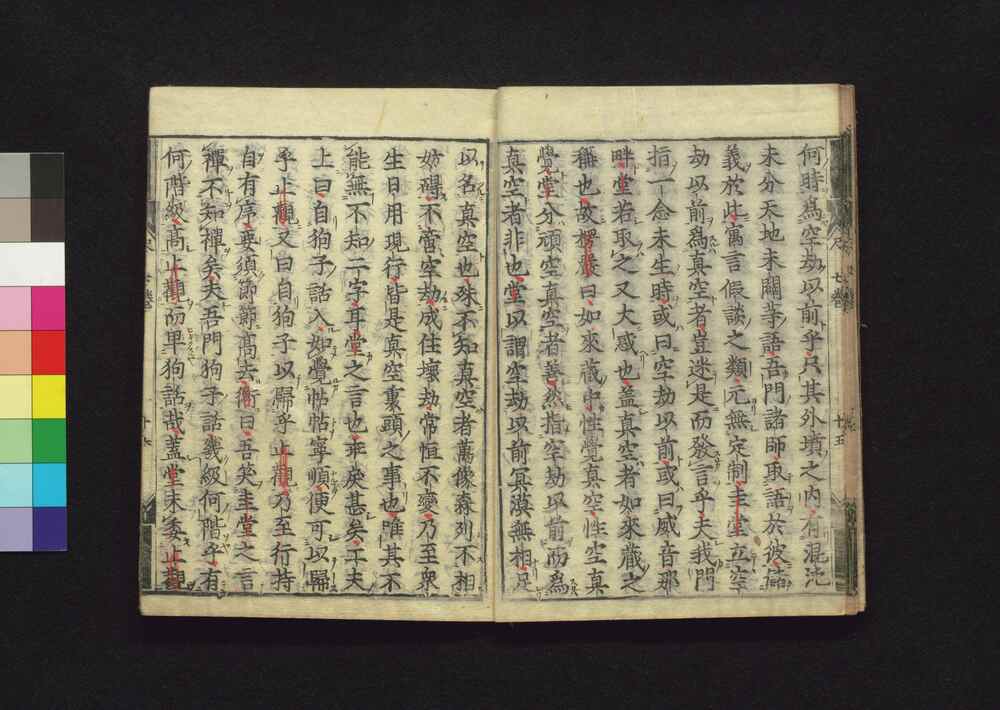 何時爲空劫以前乎只其外墳之内有混沌
未分天地未闢等語吾門諸師取語於彼儲
義於此寓言假談之類元無定制圭堂立空
劫以前爲真空者豈迷是而發言乎夫我門
指一念未生時或曰空劫以前或曰威音那
畔堂若取之又大惑也蓋真空者如來藏之
稱也故楞嚴曰如來藏中性覺真空性空真
覺堂分頑空真空者善然指空劫以前而爲
真空者非也堂以謂空劫以前冥漠無相足
以名真空也殊不知真空者萬像森列不相
妨礙不啻空劫成住壞劫常恒不變乃至衆
生日用現行皆是真空裏頭之事也唯其不
能無不知二字耳堂之言也乖戾甚矣工夫
上曰自狗子話入如覺帖帖寧順便可以歸
乎止觀又曰自狗子以歸乎止觀乃至行持
自有序要須節節高去衡曰吾笑圭堂之言
禪不知禪矣夫吾門狗子話幾級何階乎有
何階級高止觀而卑狗話哉蓋堂未委止觀
十五